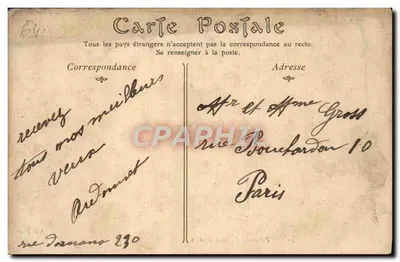 Carte Postale
Tous les pays étrangers n'acceptent pas la correspondance au recto.
Se renseigner à la poste.
Correspondance
Adresse
recevez
tous nos meilleurs
vœux
rue Dornano 230
Mr et Mme Gross
rue Bouchardon 10
Paris
CPARHPI